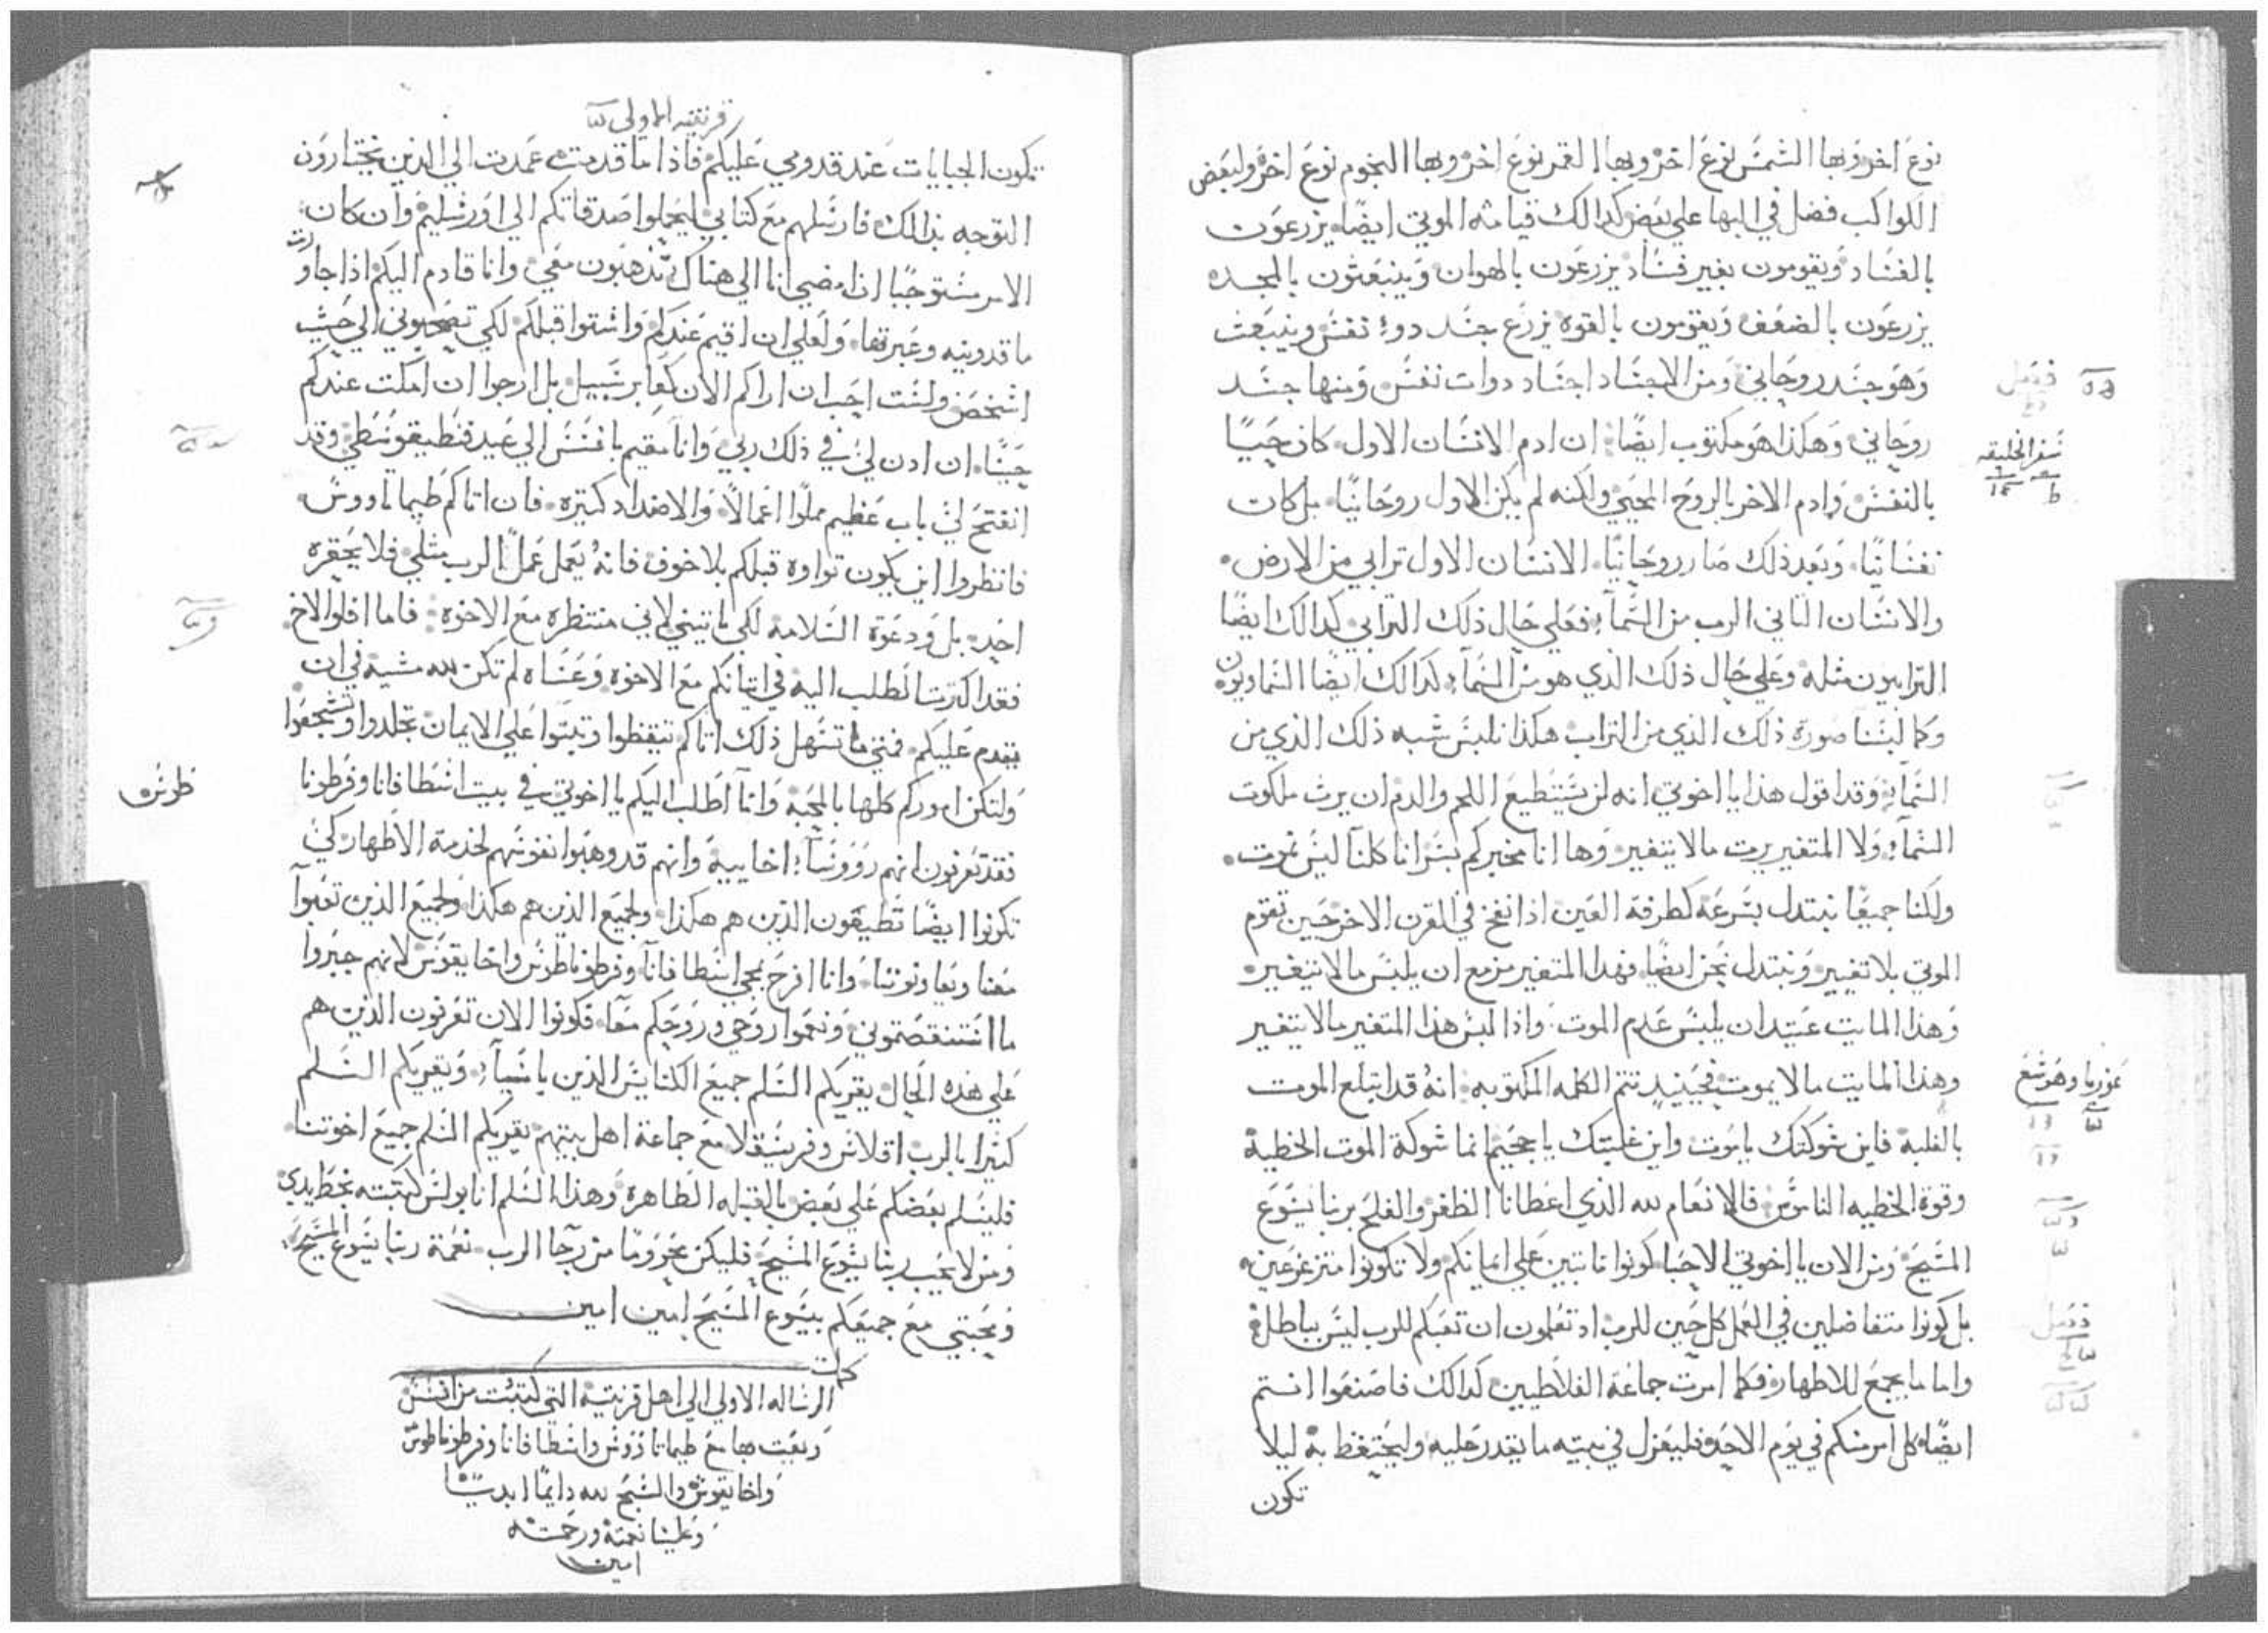 نوع اخر وبها الشمس نوع اخر وبها القمر نوع اخر وبها النجوم نوع اخر ولبعض
الكواكب فضل في البها علي بعض كدالك قيامة الموتي ايضًا يزرعون
بالفساد ويقومون بغير فساد يزرعون بالهوان وينبعثون بالمجده
يزرعون بالضعف ويقومون بالقوه يزرع جسد دو نفس وينبعث
وهو جسد روحاني ومن الاجساد اجساد دوات نفس ومنها جسد
روحاني وهكذا هو مكتوب ايضًا ان ادم الانسان الاول كان حييًا
بالنفس وادم الاخر بالروح المحيي ولكنه لم يكن الاول روحانيًا بل كان
نفسانيًا وبعد ذلك صار روحانيًا الانسان الاول ترابي من الارض
والانسان الثاني الرب من السماء فعلي حال ذلك الترابي كدالك ايضًا
الترابيون مثله وعلي حال ذلك الذي هو من السماء كدالك ايضا السماويون
وكما لبسنا صورة ذلك الذي من التراب هكذا نلبس شبه ذلك الذي من
السماء وقد اقول هذا يا اخوتي انه لن يستطيع اللحم والدم ان يرث ملكوت
السماء ولا المتغير يرث مالا يتغير وها انا مخبركم بسر انا كلنا ليس نموت
ولكنا جميعًا نبتدل بسرعة كطرفة العين اذا نفخ في القرن الاخر حين تقوم
الموتي بلا تغيير ونبتدل نحن ايضًا فهدا المتغير مزمع ان يلبس مالا يتغير
وهذا المايت عتيد ان يلبس عدم الموت واذا لبس هذا المتغير مالا يتغير
وهذا المايت مالا يموت فحينيد تتم الكلمه المكتوبه انه قد ابتلع الموت
بالغلبة فاين شوكتك يا موت واين غلبتك يا جحيم انما شوكة الموت الخطية
وقوة الخطيه الناموس فالانعام لله الذي اعطانا الظفر والفلح بربنا يسوع
المسيح ومن الان يا اخوتي الاحبا كونوا تابتين علي ايمانكم ولا تكونوا متزعزعين
بل كونوا متفاضلين في العمل كل حين للرب اد تعلمون ان تعبكم للرب ليس بباطل
واما ما يجمع للاطهار فكما امرت جماعة الغلاطيين كدالك فاصنعوا انتم
ايضًا كل امر منكم في يوم الاحد فليعزل في بيته ما يقدر عليه وليحتفظ به ليلا
تكون
فصل
سفر الخليقه
نموربا وهوشع
فصل
قرنتيه الاولي
تكون الجبايات عند قدومي عليكم فاذا ما قدمت عمدت الي الذين تختارون
التوجه بذالك فارسلهم مع كتابي ليحملوا صدقاتكم الي اورشليم وان كان
الامر مستوجبًا ان امضي انا الي هناك تذهبون معي وانا قادم اليكم اذا جاوزت
ماقدونيه وعبرتها ولعلي ان اقيم عندكم واشتوا قبلكم لكي تصحبوني الي حيث
اشخص ولست احب ان اراكم الان كعابر سبيل بل ارجوا ان امكت عندكم
حينًا ان ادن لي في ذلك ربي وانا مقيم بافسس الي عيد فنطيقوسطي وقد
انفتح لي باب عظيم مملوا اعمالًا والاضداد كتيره فان اتاكم طيماتاووس
فانظروا اين يكون تواوه قبلكم بلا خوف فانه يعمل عمل الرب مثلي فلا يحقره
احد بل ودعوه السلامة لكي ياتيني لاني منتظره مع الاخوه فاما افلوا الاخ
فقد اكترت الطلب اليه في اتيانكم مع الاخوه وعساه لم تكن لله مشية في ان
يقدم عليكم فمتي ما تسهل ذلك اتاكم تيقظوا وتبتوا علي الايمان تجلدوا وتشجعوا
ولتكن اموركم كلها بالمحبة وانا اطلب اليكم يا اخوتي في بيت اسطافانا وفرطونا
فقد تعرفون انهم رووسا اخاييه وانهم قد وهبوا نفوسهم لخدمة الاطهار كي
تكونوا ايضًا تطيعون الذين هم هكذا ولجميع الذين هم هكذا ولجميع الذين تعبوا
معنا ويعاونوننا وانا افرح بمجي اسطافانا وفرطوناطوس واخايقوس لانهم جبروا
ما استنقصتموني ونعموا روحي وروحكم معا فكونوا الان تعرفون الذين هم
علي هذه الحال يقريكم السلم جميع الكنايس الذين باسيا ويقريكم السلم
كثيرًا بالرب اقلاس وفرسيقلا مع جماعة اهل بيتهم يقريكم السلم جميع اخوتنا
فليسلم بعضكم علي بعض بالقبله الطاهرة وهذا السلم انا بولس كتبته بخط يدي
ومن لا يحب ربنا يسوع المسيح فليكن محرومًا من رجا الرب نعمة ربنا يسوع المسيح
ومحبتي مع جميعكم بيسوع المسيح امين امين
كملت
الرساله الاولي الي اهل قرنتية التي كتبت من افسس
وبعت بها مع طيماتاووس واسطافانا وفرطوناطوس
واخايقوس والسبح لله دايمًا ابديًا
وعلينا نعمته ورحمته
امين
طوس